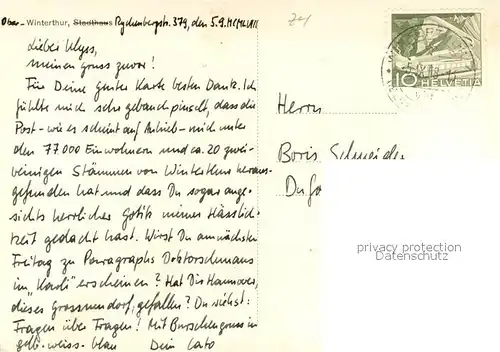 Ober - Winterthur, Stadthaus Rychenbergstr. 379, den 5.9.
Liebei Ulyss,
meinen gruss zuvor!
Für Deine gute Karte besten Dank. Ich
fühlte mich sehr gebauchpinselt, dass die
Post - wie es scheint auf Anhieb - mich unter
den 77000 Einwohnern und ca. 20 zwei-
beinigen Stämmen von Winterthur heraus-
gefunden hat und dass Du sogar ange-
sichts herrlicher Gotik meiner Hässlich-
keit gedacht hast. Wirst Du am nächsten
Freitag zu Paragraphs Doktorschmaus
im "Karli" erscheinen? Hat Dir Hannover,
dieses Grossmendorf, gefallen? Du siehst:
Fragen über Fragen! Mit Burschengruss in
gelb-weiss-blau Dein Cato
Herrn
Boris Schneider
Du
10 HELVETIA
privacy protection
Datenschutz